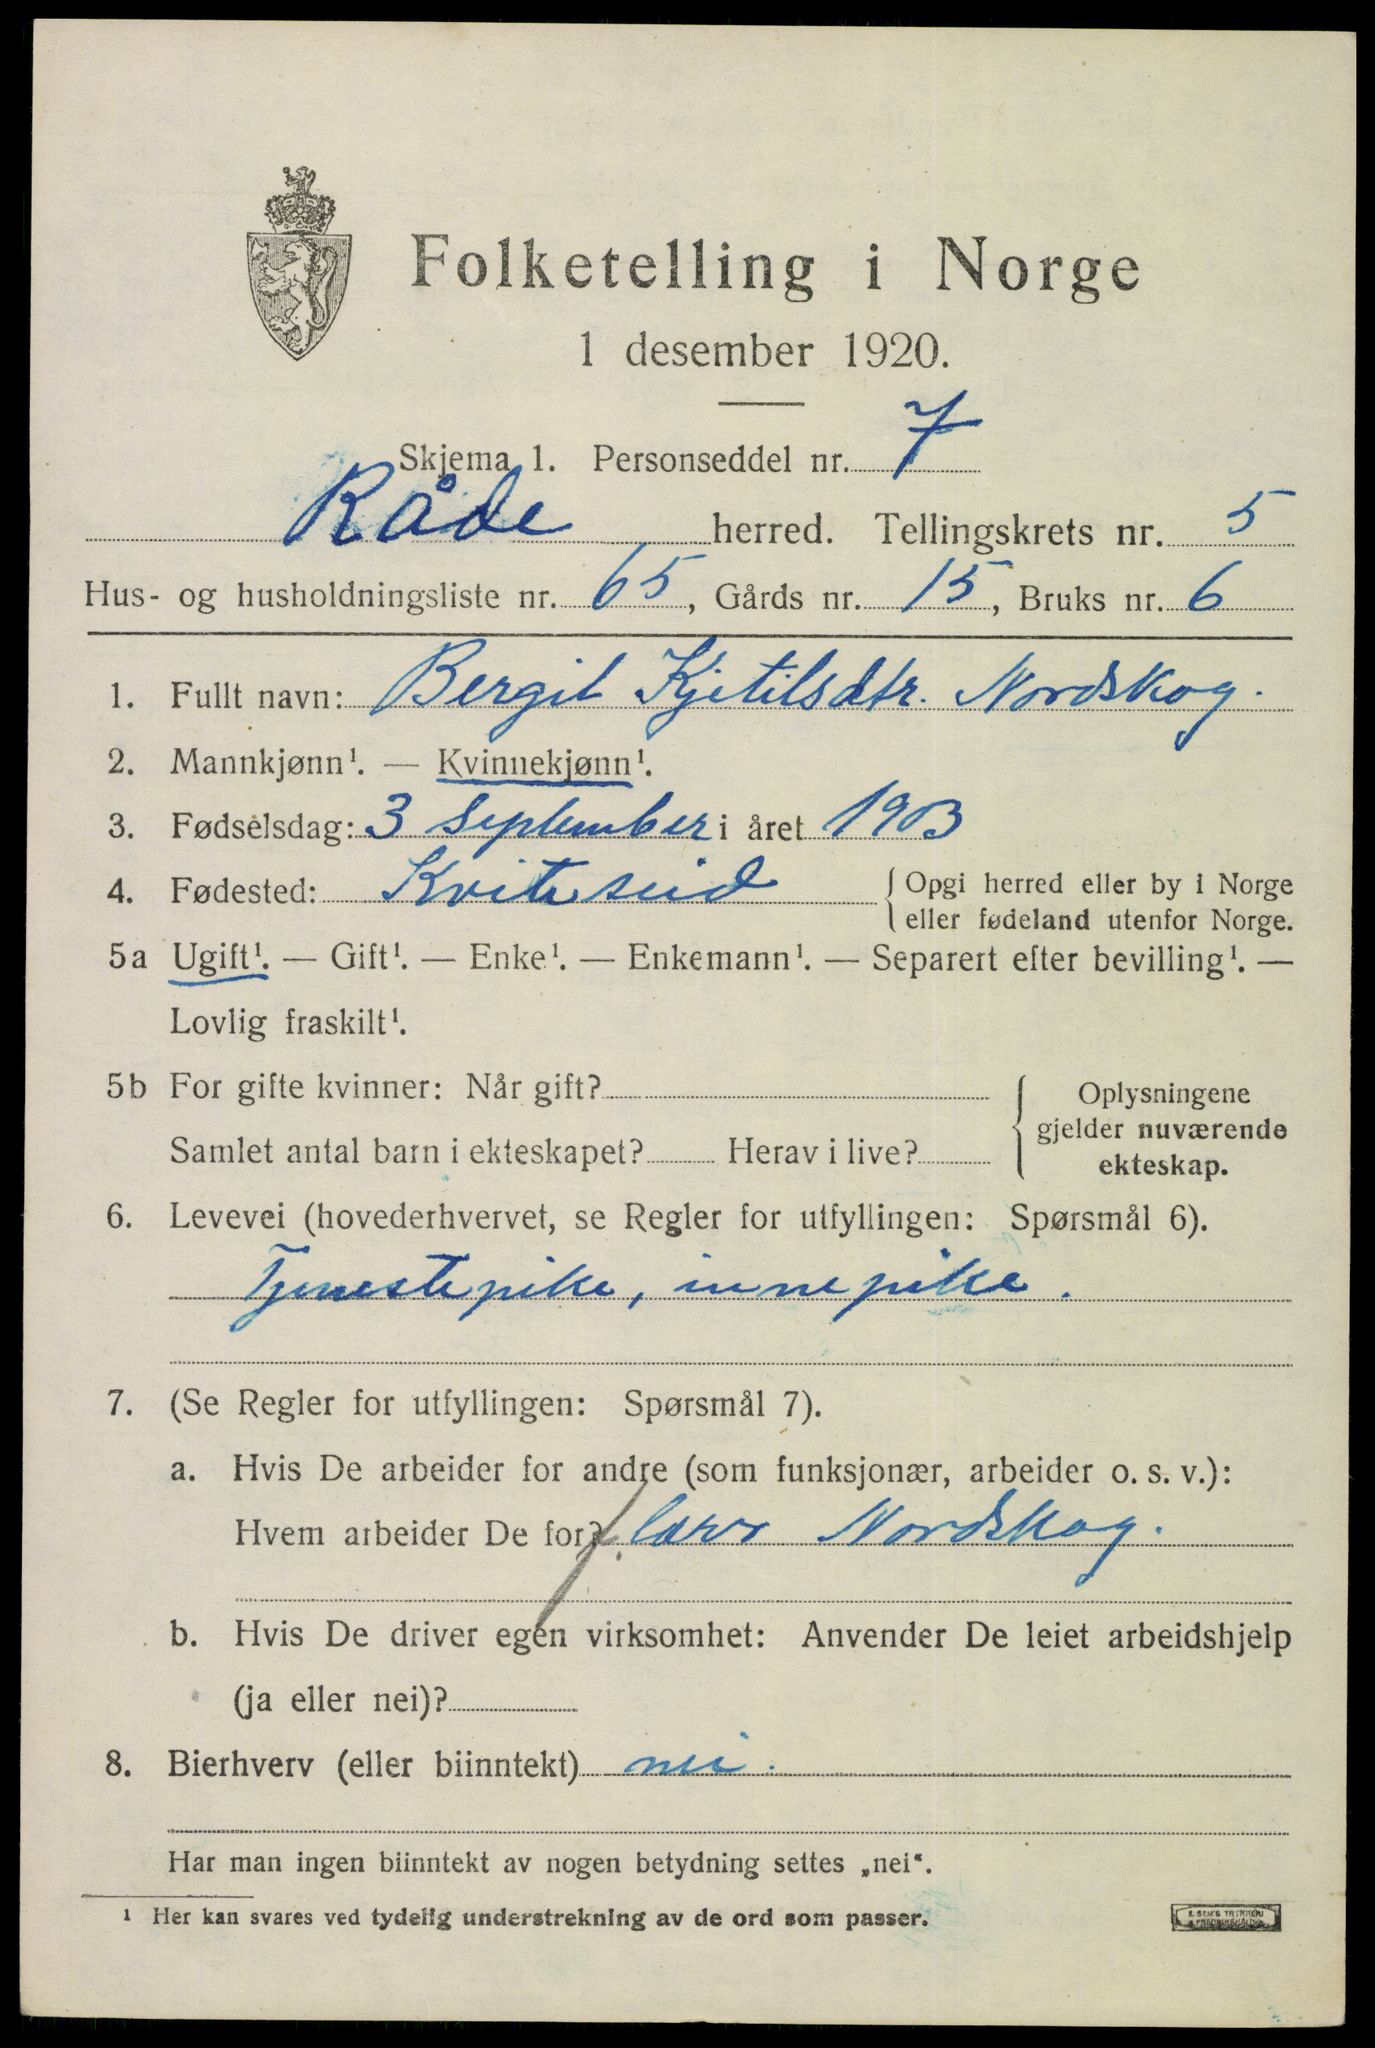 Folketelling i Norge
1 desember 1920.
Skjema 1. Personseddel nr. 7
Råde herred. Tellingskrets nr. 5
Hus- og husholdningsliste nr. 65, Gårds nr. 15, Bruks nr. 6
1. Fullt navn: Bergit Kjetilsdtr. Nordskog.
2. Mannkjønn¹. — Kvinnekjønn¹.
3. Fødselsdag: 3 september i året 1903
4. Fødested: Kviteseid { Opgi herred eller by i Norge
eller fødeland utenfor Norge.
5a Ugift¹. — Gift¹. — Enke¹. — Enkemann¹. — Separert efter bevilling¹. —
Lovlig fraskilt¹.
5b For gifte kvinner: Når gift? { Oplysningene
gjelder nuværende
Samlet antal barn i ekteskapet? Herav i live?
ekteskap.
6. Levevei (hovederhvervet, se Regler for utfyllingen: Spørsmål 6).
Tjenestepike, innepike.
7. (Se Regler for utfyllingen: Spørsmål 7).
a. Hvis De arbeider for andre (som funksjonær, arbeider o. s. v.):
Hvem arbeider De for? Nordskog.
b. Hvis De driver egen virksomhet: Anvender De leiet arbeidshjelp
(ja eller nei)?
8. Bierhverv (eller biinntekt) nei.
Har man ingen biinntekt av nogen betydning settes „nei“.
¹ Her kan svares ved tydelig understrekning av de ord som passer.
E. SEM'S TRYKKERI
FREDRIKSHALD